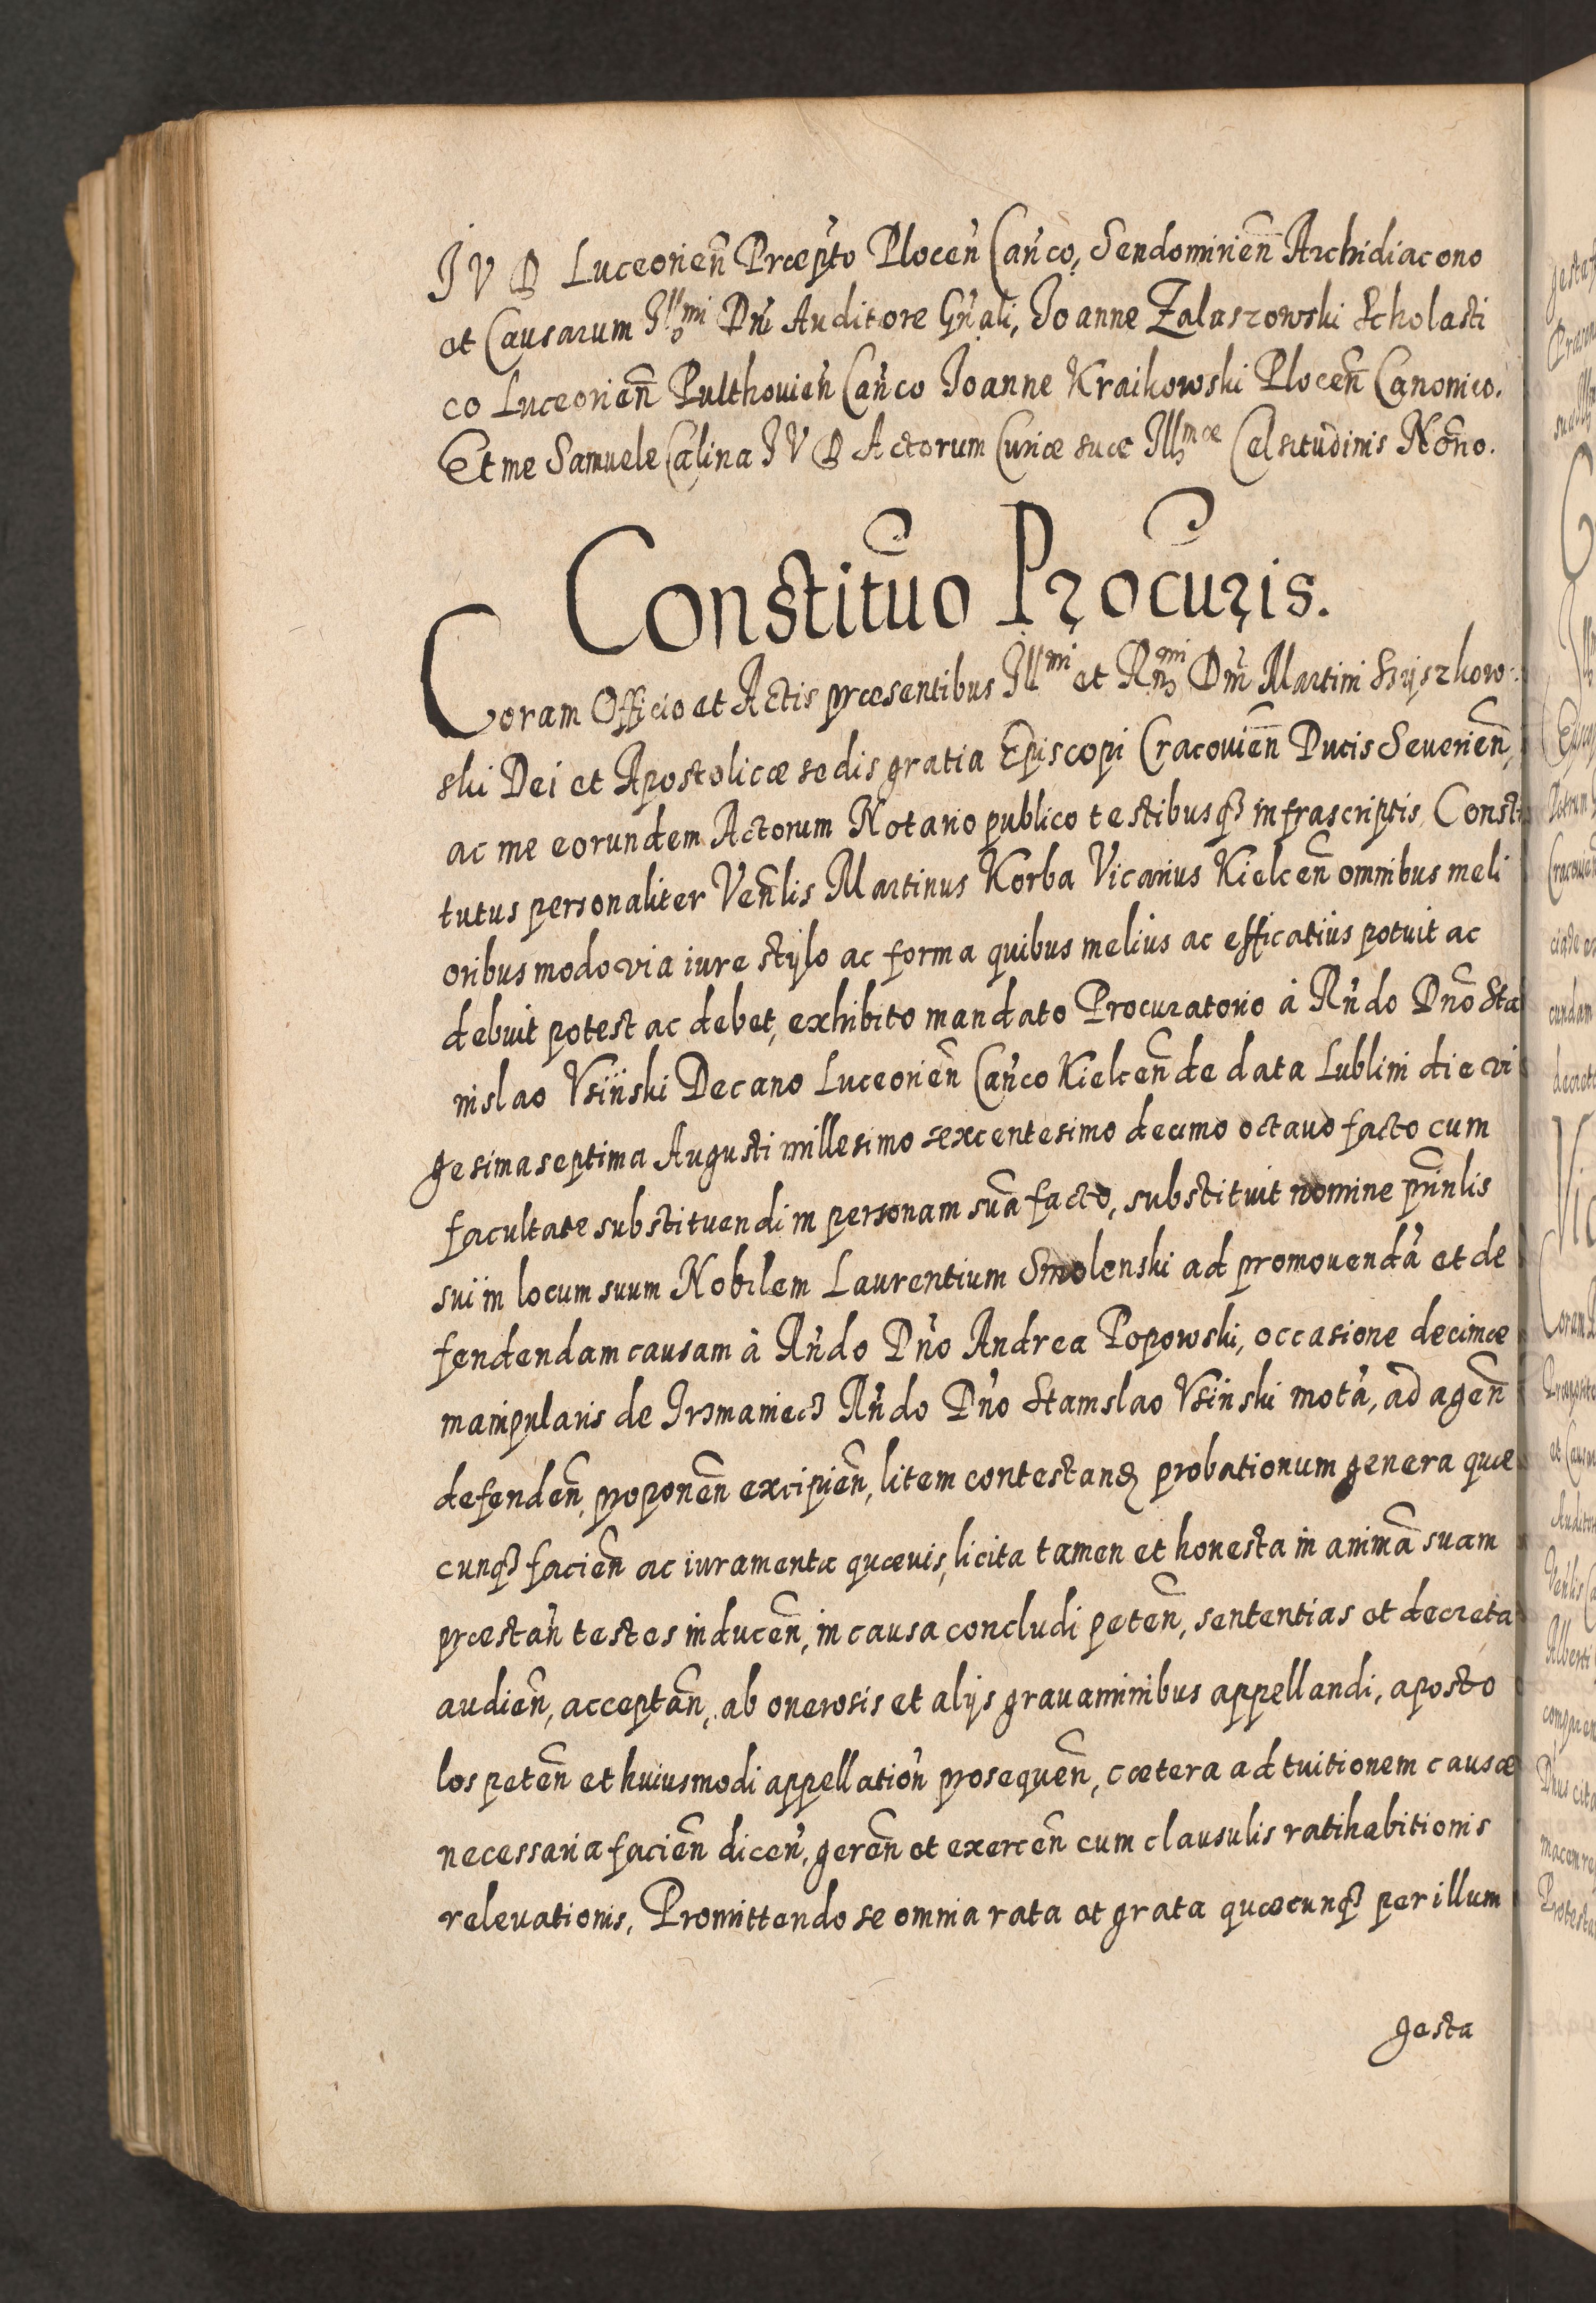 J V D Luceorien̄ Præp̄to Plocen̄ Can̄co, Sendomirien̄ Archidiacono
et Causarum Ill^mi Dn̄i Auditore Gn̄ali, Joanne Zalaszowski Scholasti
co Luceorien̄ Pulthouien̄ Can̄co Joanne Kraikowski Plocen̄ Canonico.
Et me Samuele Calina J V D Actorum Curiæ suæ Ill^mæ Celsitudinis Nōrio.
Constitūo Procuris.
Coram Officio et Actis præsentibus Ill^mi et Rn^mi Dn̄i Martini Szyszkow
ski Dei et Apostolicæ sedis gratia Episcopi Cracouien̄ Ducis Seuerien̄,
ac me eorundem Actorum Notario publico testibusq3 infrascriptis, Consti
tutus personaliter Ven̄lis Martinus Korba Vicarius Kielcen̄ omnibus meli
oribus modo via iure stylo ac forma quibus melius ac efficatius potuit ac
debuit potest ac debet, exhibito mandato Procuratorio à Rn̄do Dn̄o Sta
nislao Vsiński Decano Luceorien̄ Can̄co Kielcen̄ de data Lublini die vi
gesima septima Augusti millesimo sexcentesimo decimo octauo facto cum
facultate substituendi in personam suā facto, substituit nomine prīnlis
sui in locum suum Nobilem Laurentium Smolenski ad promouendā et de
fendendam causam à Rn̄do Dn̄o Andrea Popowski, occasione decimæ
manipularis de Irzmaniec3 Rn̄do Dn̄o Stanislao Vsiński motā, ad agen̄
defenden̄, proponen̄ excipien̄, litem contestand probationum genera quæ
cunq3 facien̄ ac iuramenta quævis, licita tamen et honesta in animā suam
præstan̄ testes inducen̄, in causa concludi peten̄, sententias et decreta
audien̄, acceptan̄, ab onerosis et alijs grauaminibus appellandi, aposto
los peten̄ et huiusmodi appellation̄ prosequen̄, cætera ad tuitionem causæ
necessaria facien̄ dicen̄, geren̄ et exercen̄ cum clausulis ratihabitionis
releuationis, Promittendo se omnia rata et grata quæcunq3 per illum
gesta